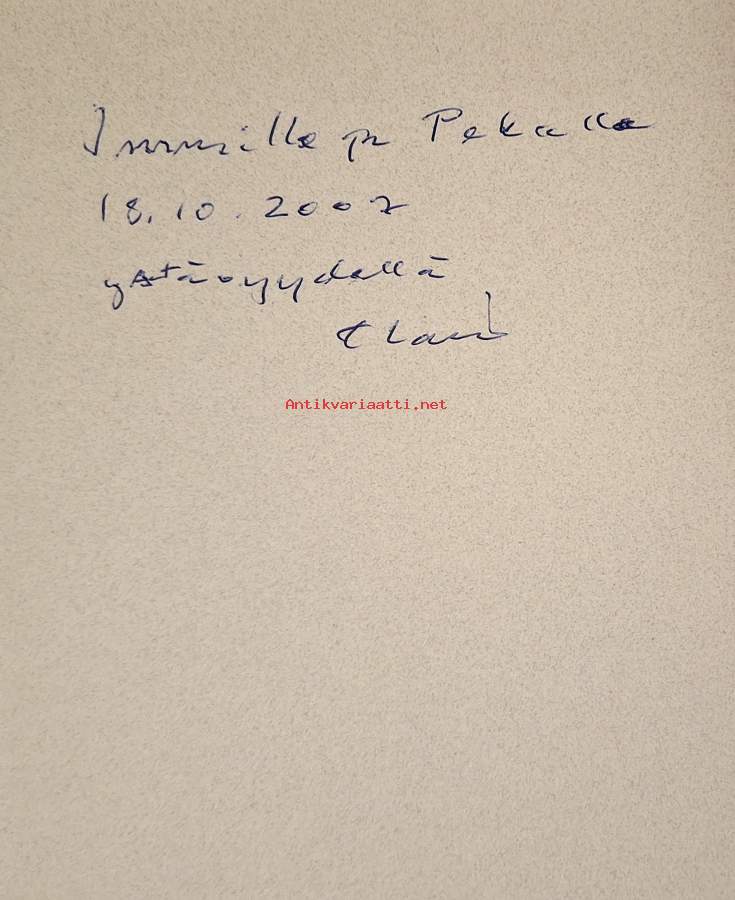 Immille ja Pekalle
18.10.2007
ystävyydellä
Antikvariaatti.net